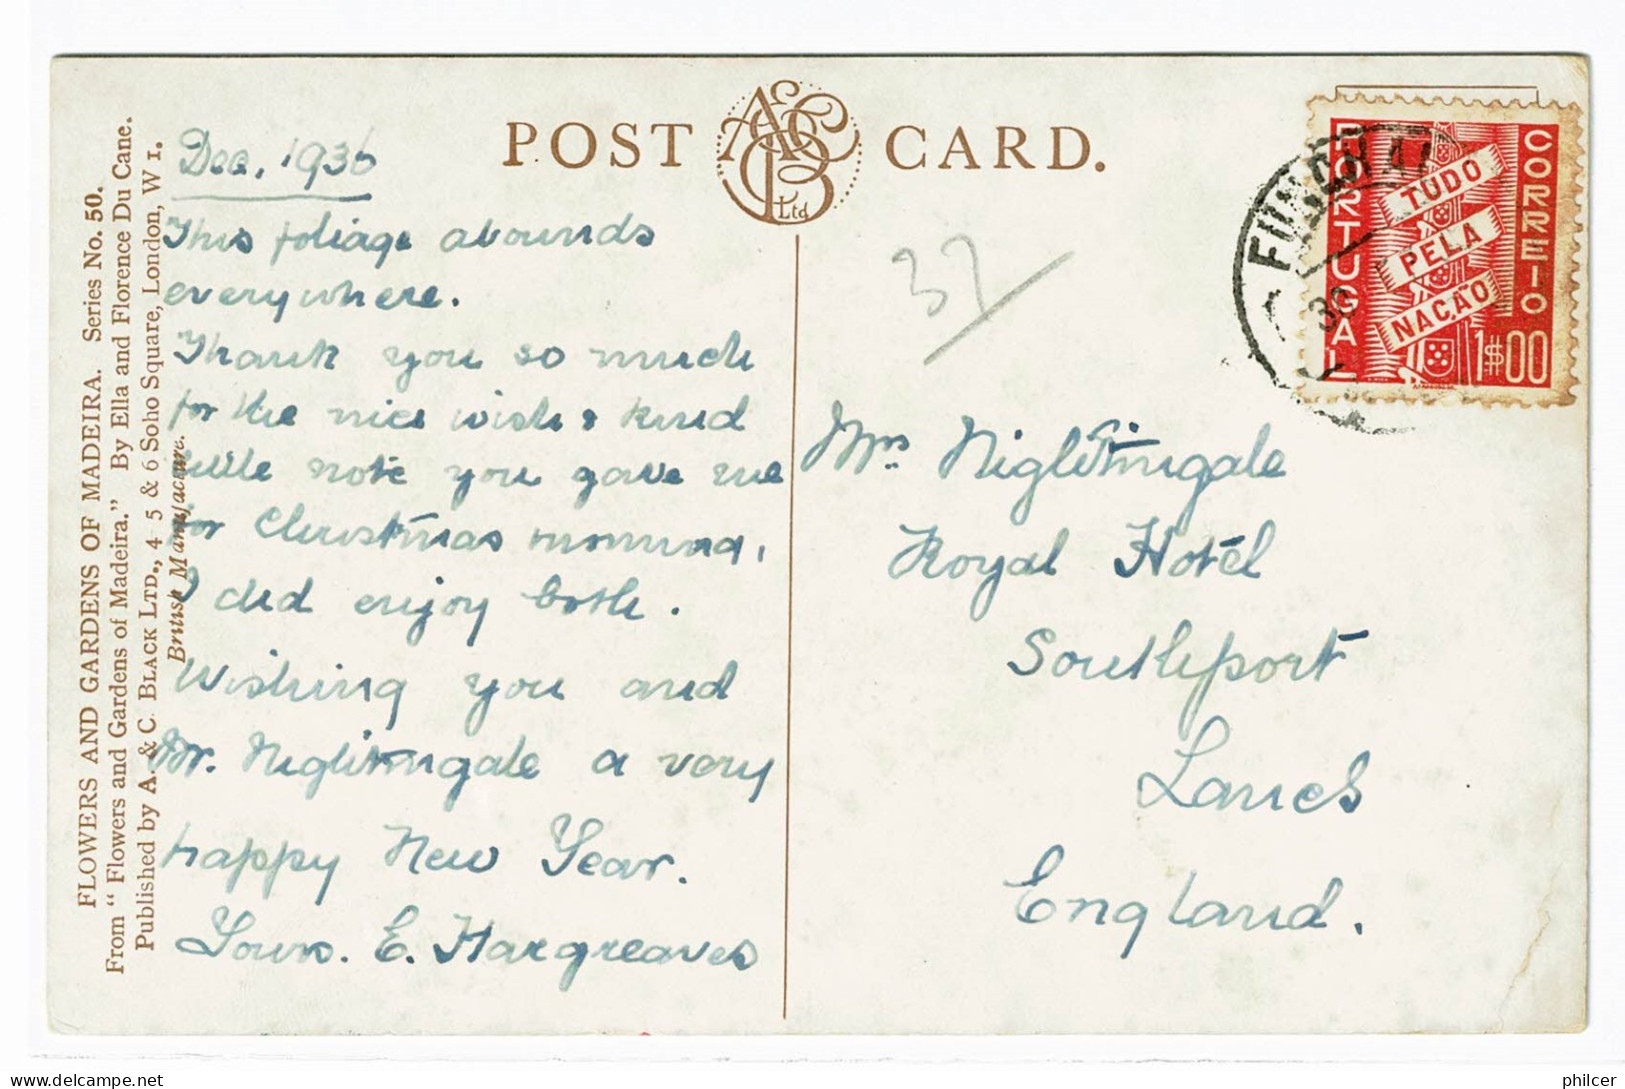 POST CARD.
A & C B Ltd
FLOWERS AND GARDENS OF MADEIRA. Series No. 50.
From "Flowers and Gardens of Madeira." By Ella and Florence Du Cane.
Published by A. & C. BLACK LTD., 4 5 & 6 Soho Square, London, W 1.
British Manufacture.
Dec, 1936
This foliage abounds
everywhere.
Thank you so much
for the nice wish & kind
little note you gave me
for Christmas morning.
I did enjoy both.
Wishing you and
Mr. Nightingale a very
happy New Year.
Yours. E. Hargreaves
37
FUNCHAL
30
PORTUGAL
CORREIO
TUDO
PELA
NAÇÃO
1$00
Mrs. Nightingale
Royal Hotel
Southport
Lancs
England.
philcer